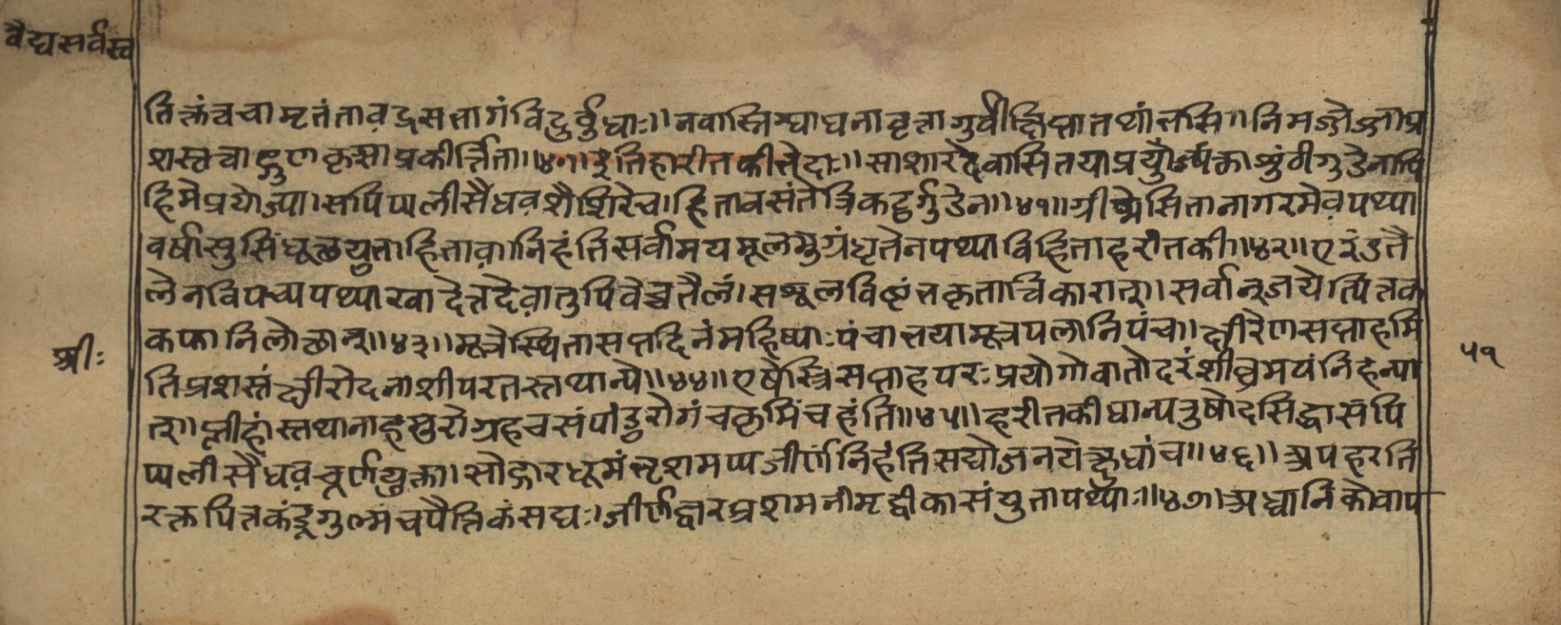 वैद्यसर्वस्व
तिक्तं चामृतं तावद्रसत्तागं विदुर्बुधाः॥ नवास्निग्धाघनावृत्तागुर्वीक्षिप्तातथांभसि॥ निमज्जे
शस्तत्वाद्गुणकृत्साप्रकीर्त्तिता॥४०॥ इतिहारीतकीभेदाः॥ साशारदे वासितयाप्रयु शुंठीगुडेनापि
हिमेप्रयोज्या।सपिप्पलीसैंधवशैशिरेच।हितावसंतेत्रिकटुर्गुडेन॥४१॥ग्रीष्मेसितानागरमेवपथ्या
वर्षासुसिंधूत्थयुताहितावा।निहंतिसर्वामयमूलमुग्रंघृतेनपथ्याविहिताहरीतकी॥४२॥एरंडतै
लेनविपच्यपथ्याखादेत्तदेवातुपिवेच्चतैलं।सशूलविष्टंभकृतान्विकारान्।सर्वान्जयेत्पित्तव
कफानिलोत्थान्॥४३॥मूत्रेस्थितासप्तदिनंमहिष्याःपंचात्तयामूत्रपलानिपंच।क्षीरेणसप्ताहमि
तिप्रशस्तंक्षीरोदनाशीपरतस्तथान्ये॥४४॥एषस्त्रिसप्ताहपरःप्रयोगोवातोदरंशीघ्रमयंनिहन्या
त्।प्लीहांस्तथानाहसुरोग्रहचसंपांडुरोगंचकृमिंचहंति॥४५॥हरीतकीधान्यतुषोदसिद्धासपि
प्पलीसैंधवचूर्णयुक्ता।सोद्गारधूमंभृशमप्यजीर्णंनिहंतिसद्योजनयेत्क्षुधांच॥४६॥अपहरति
रक्तपित्तकंडूगुल्मंचपैत्तिकंसद्यः।जीर्णज्वरप्रशमनीमृद्वीकासंयुतापथ्याः॥४७॥अध्वानिकोवाप
श्रीः
५१